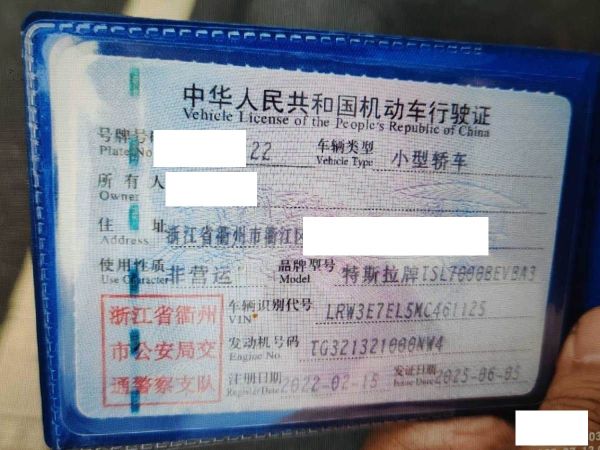 中华人民共和国机动车行驶证
Vehicle License of the People's Republic of China
号牌号 22 车辆类型 小型轿车
Plate No. Vehicle Type
所有人
Owner
住址 浙江省衢州市衢江区
Address
使用性质 非营运 品牌型号 特斯拉牌TSL7000BEVBA3
Use Character Model
浙江省衢州
市公安局交
通警察支队
车辆识别代号 LRW3E7EL5MC461125
VIN
发动机号码 TG321321000NW4
Engine No.
注册日期 2022-02-15 发证日期 2025-06-05
Register Date Issue Date